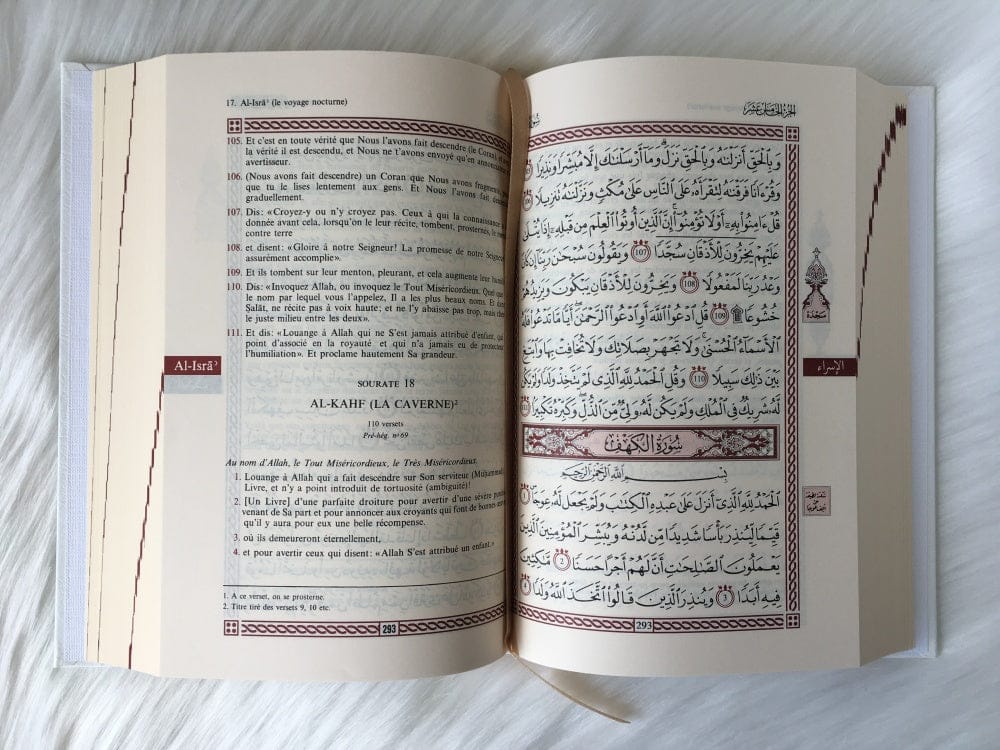 17. Al-Isrāʾ (le voyage nocturne)
105. Et c'est en toute vérité que Nous l'avons fait descendre (le Coran) et
la vérité il est descendu, et Nous ne t'avons envoyé qu'en annonciateur
avertisseur.
106. (Nous avons fait descendre) un Coran que Nous avons fragmenté,
que tu le lises lentement aux gens. Et Nous l'avons fait
graduellement.
107. Dis: «Croyez-y ou n'y croyez pas. Ceux à qui la connaissance
donnée avant cela, lorsqu'on le leur récite, tombent, prosternés, le
contre terre
108. et disent: «Gloire à notre Seigneur! La promesse de notre Seigneur
assurément accomplie».
109. Et ils tombent sur leur menton, pleurant, et cela augmente leur
110. Dis: «Invoquez Allah, ou invoquez le Tout Miséricordieux. Quel que
le nom par lequel vous l'appelez, Il a les plus beaux noms. Et dans
Ṣalāt, ne récite pas à voix haute; et ne l'y abaisse pas trop, mais
le juste milieu entre les deux».
111. Et dis: «Louange à Allah qui ne S'est jamais attribué d'enfant, qui
point d'associé en la royauté et qui n'a jamais eu de protecteur
l'humiliation». Et proclame hautement Sa grandeur.
Al-Isrāʾ
SOURATE 18
AL-KAHF (LA CAVERNE)²
110 versets
Pré-hég. n° 69
Au nom d'Allah, le Tout Miséricordieux, le Très Miséricordieux.
1. Louange à Allah qui a fait descendre Sur Son serviteur (Muḥammad)
Livre, et n'y a point introduit de tortuosité (ambiguïté)!
2. [Un Livre] d'une parfaite droiture pour avertir d'une sévère
venant de Sa part et pour annoncer aux croyants qui font de bonnes
qu'il y aura pour eux une belle récompense.
3. où ils demeureront éternellement,
4. et pour avertir ceux qui disent: «Allah S'est attribué un enfant.»
1. A ce verset, on se prosterne.
2. Titre tiré des versets 9, 10 etc.
293
الجزء الخامس عشر
وَبِالْحَقِّ أَنزَلْنَاهُ وَبِالْحَقِّ نَزَلَ وَمَا أَرْسَلْنَاكَ إِلَّا مُبَشِّرًا وَنَذِيرًا
وَقُرْءَانًا فَرَقْنَاهُ لِتَقْرَأَهُ عَلَى النَّاسِ عَلَى مُكْثٍ وَنَزَّلْنَاهُ تَنزِيلًا
قُلْ ءَامِنُوا بِهِ أَوْ لَا تُؤْمِنُوا إِنَّ الَّذِينَ أُوتُوا الْعِلْمَ مِن قَبْلِهِ إِذَا يُتْلَى
عَلَيْهِمْ يَخِرُّونَ لِلْأَذْقَانِ سُجَّدًا 107 وَيَقُولُونَ سُبْحَانَ رَبِّنَا إِن كَانَ
وَعْدُ رَبِّنَا لَمَفْعُولًا 108 وَيَخِرُّونَ لِلْأَذْقَانِ يَبْكُونَ وَيَزِيدُهُمْ
خُشُوعًا ۩ 109 قُلِ ادْعُوا اللَّهَ أَوِ ادْعُوا الرَّحْمَٰنَ أَيًّا مَّا تَدْعُوا فَلَهُ
الْأَسْمَاءُ الْحُسْنَى وَلَا تَجْهَرْ بِصَلَاتِكَ وَلَا تُخَافِتْ بِهَا وَابْتَغِ
بَيْنَ ذَٰلِكَ سَبِيلًا 110 وَقُلِ الْحَمْدُ لِلَّهِ الَّذِي لَمْ يَتَّخِذْ وَلَدًا وَلَمْ يَكُن
لَّهُ شَرِيكٌ فِي الْمُلْكِ وَلَمْ يَكُن لَّهُ وَلِيٌّ مِّنَ الذُّلِّ وَكَبِّرْهُ تَكْبِيرًا
سجدة
الإسراء
سُورَةُ الْكَهْفِ
بِسْمِ اللَّهِ الرَّحْمَٰنِ الرَّحِيمِ
الْحَمْدُ لِلَّهِ الَّذِي أَنزَلَ عَلَى عَبْدِهِ الْكِتَابَ وَلَمْ يَجْعَل لَّهُ عِوَجًا 1
قَيِّمًا لِّيُنذِرَ بَأْسًا شَدِيدًا مِّن لَّدُنْهُ وَيُبَشِّرَ الْمُؤْمِنِينَ الَّذِينَ
يَعْمَلُونَ الصَّالِحَاتِ أَنَّ لَهُمْ أَجْرًا حَسَنًا 2 مَّاكِثِينَ
فِيهِ أَبَدًا 3 وَيُنذِرَ الَّذِينَ قَالُوا اتَّخَذَ اللَّهُ وَلَدًا 4
293